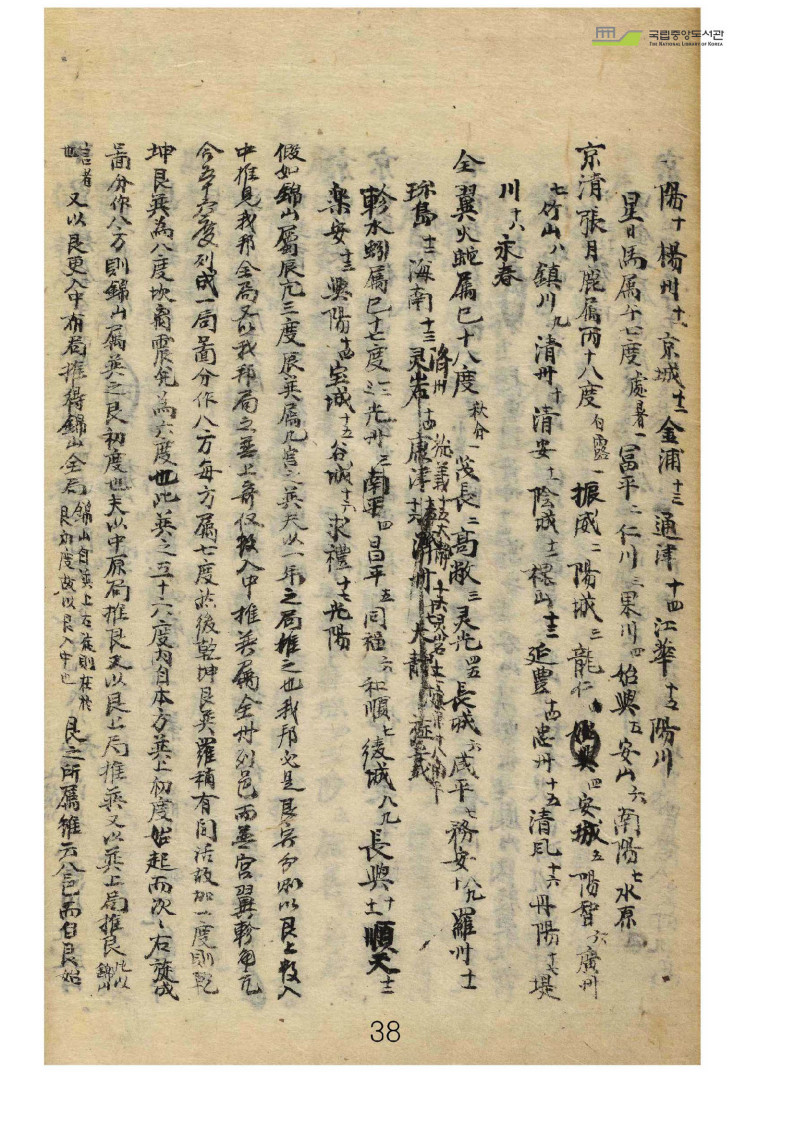 국립중앙도서관
THE NATIONAL LIBRARY OF KOREA
陽 十 楊州 十一 京城 十二 金浦 十三 通津 十四 江華 十五 陽川
星日馬属午七度 處暑一 富平 二 仁川 三 果川 四 始興 五 安山 六 南陽 七 水原
京清 張月鹿属丙十八度 白露一 振威 二 陽城 三 龍仁 四 安城 五 陽智 六 廣州
七 竹山 八 鎮川 九 清州 十 清安 十一 陰城 十二 槐山 十三 延豊 十四 忠州 十五 清風 十六 丹陽 十七 堤
川 十八 永春
全 翼火蛇属巳十八度 秋分一 茂長 二 高敞 三 灵光 四五 長城 六 咸平 七 務安 八九 羅州 十一
珍島 十二 海南 十三 灵岩 十四 康津 濟州 大静 旌義
軫水蚓属巳十七度 一二 光州 三 南平 四 昌平 五 同福 六 和順 七 綾城 八九 長興 十 十一 順天 十二
楽安 十三 興陽 十四 宝城 十五 谷城 十六 求禮 十七 光陽
假如錦山屬辰亢三度辰巽属凡言之巽夫以一年之局推之也我邦必是艮宮分別以艮上数入
中推見我邦全局又以我邦局之巽上舜位数入中推巽屬全州列邑而巽宮翼軫角亢
今五十六度列成一局啚分作八方每方属七度於後乾坤艮巽羅稍有間活故加一度則乾
坤艮巽為八度坎离震兌為六度也此巽之五十六度内自本方巽上初度始起而次〻右旋成
啚分作八方則錦山屬巽之艮初度也夫以中原局推艮又以艮上局推巽又以巽上局推艮 凡以錦山
言者也 又以艮更入中布局推得錦山全局 錦山自巽上右旋則在於艮初度故以艮入中也 艮之所属雖云八邑而自艮始
38